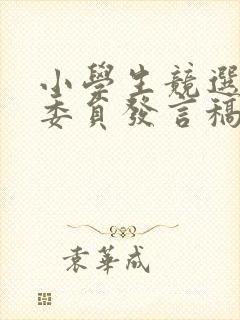 小學生競選
委員發言稿
袁華成